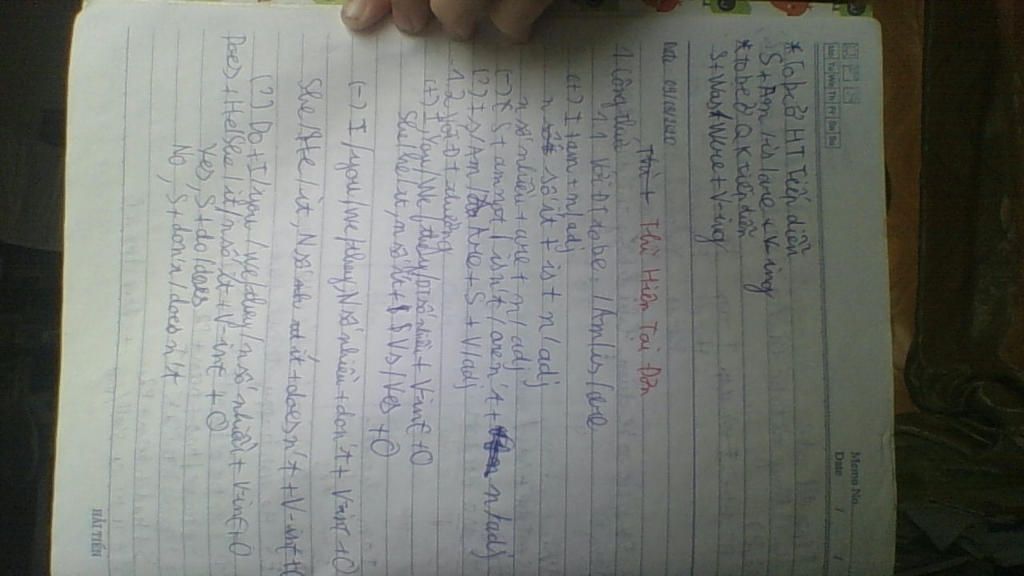 Memo No. / /
Date
Mo Tu We Th Fr Sa Su
* To be ở HT Tiếp diễn
S + Am / is / are + V-ing
* to be ở QK tiếp diễn
S + Was / Were + V-ing
Thì Hiện Tại Đơn
1 Công thức
1.1 Với ĐT to be / Am / is / are
(+) I + am + n / adj
n số ít + is + n / adj
n số nhiều + are + n / adj
(-) S + am not / isn't / aren't + n / adj
(?) Is / Am / Are + S + V / adj
1.2 Với ĐT thường
(+) I / you / We / they / n số nhiều + V-inf + O
She / he / it, n số ít + Vs / Ves + O
(-) I / you / we / they, N số nhiều + don't + V-inf + O
She / He / it, N số ít + doesn't + V-inf + O
(?) Do + I / you / we / they / n số nhiều + V-inf + O
Does + He / She / it / n số ít + V-inf + O
Yes, S + do / does
No, S + don't / doesn't
HẢI TIẾN